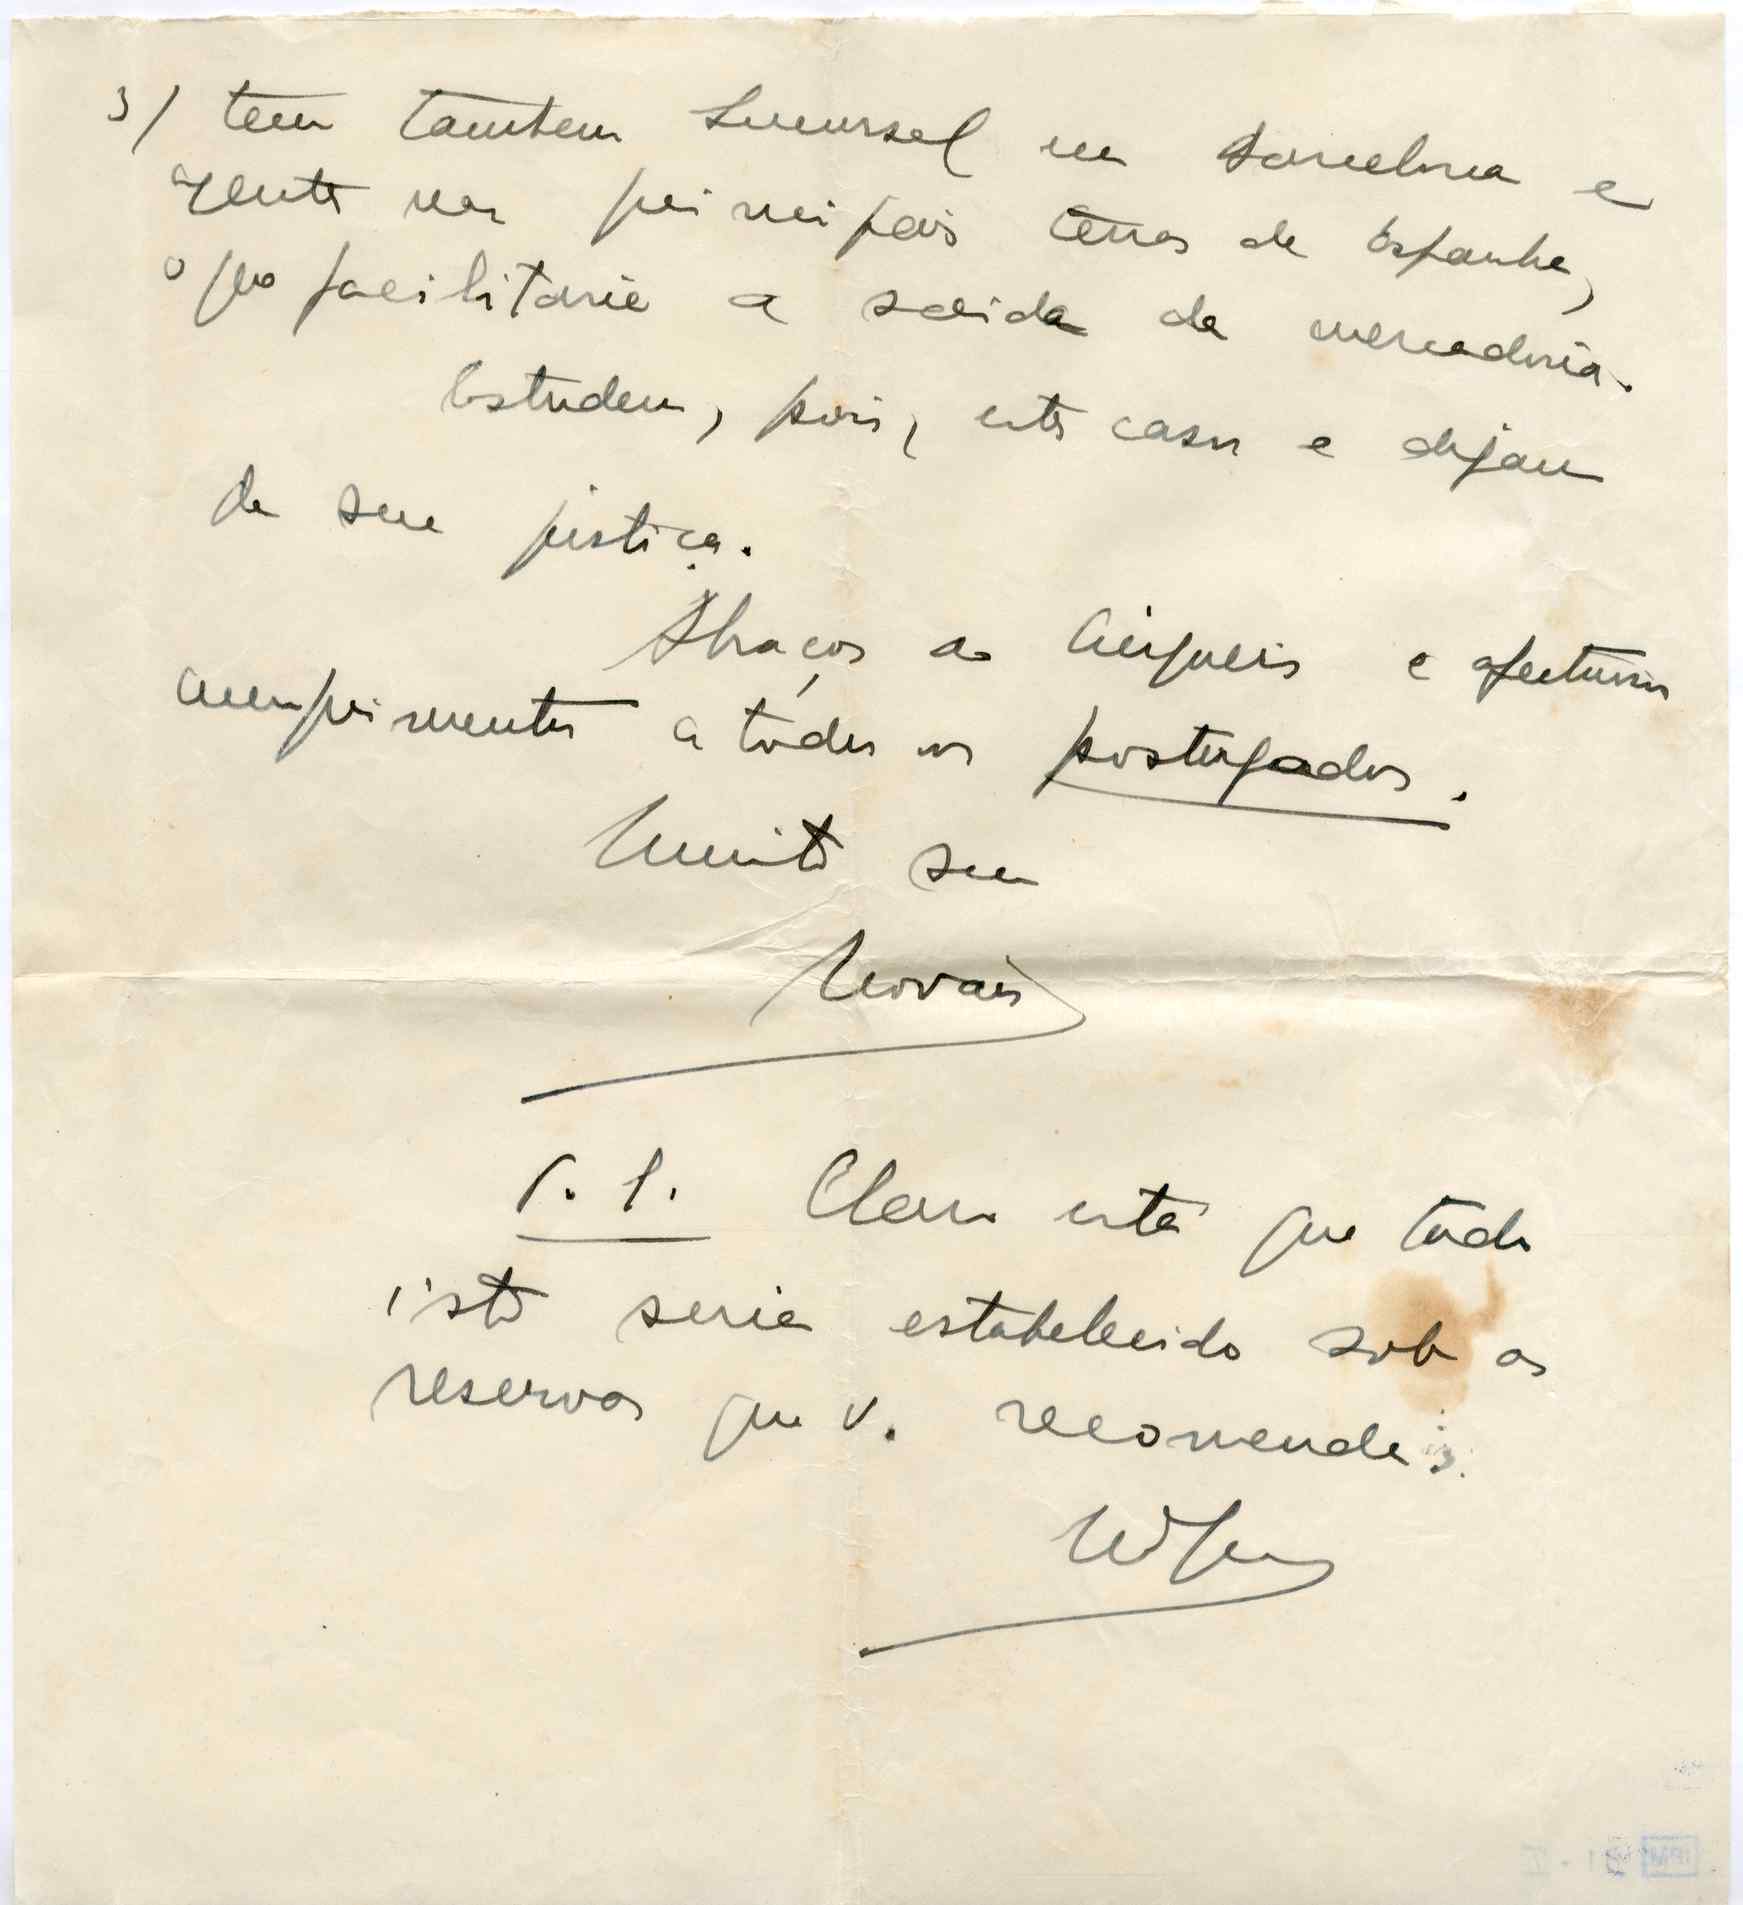 3/ tem tambem Sucursal em Barcelona e
agente nas principais terras de Espanha,
o que facilitaria a saida da mercadoria.
Estudem, pois, este caso e digam
de sua justiça.
Abraços ao e afectuosos
cumprimentos a tôdos os postergados.
Muito seu
Novais
P. S. Claro está que tudo
isto seria estabelecido sob as
reservas que V. recomenda